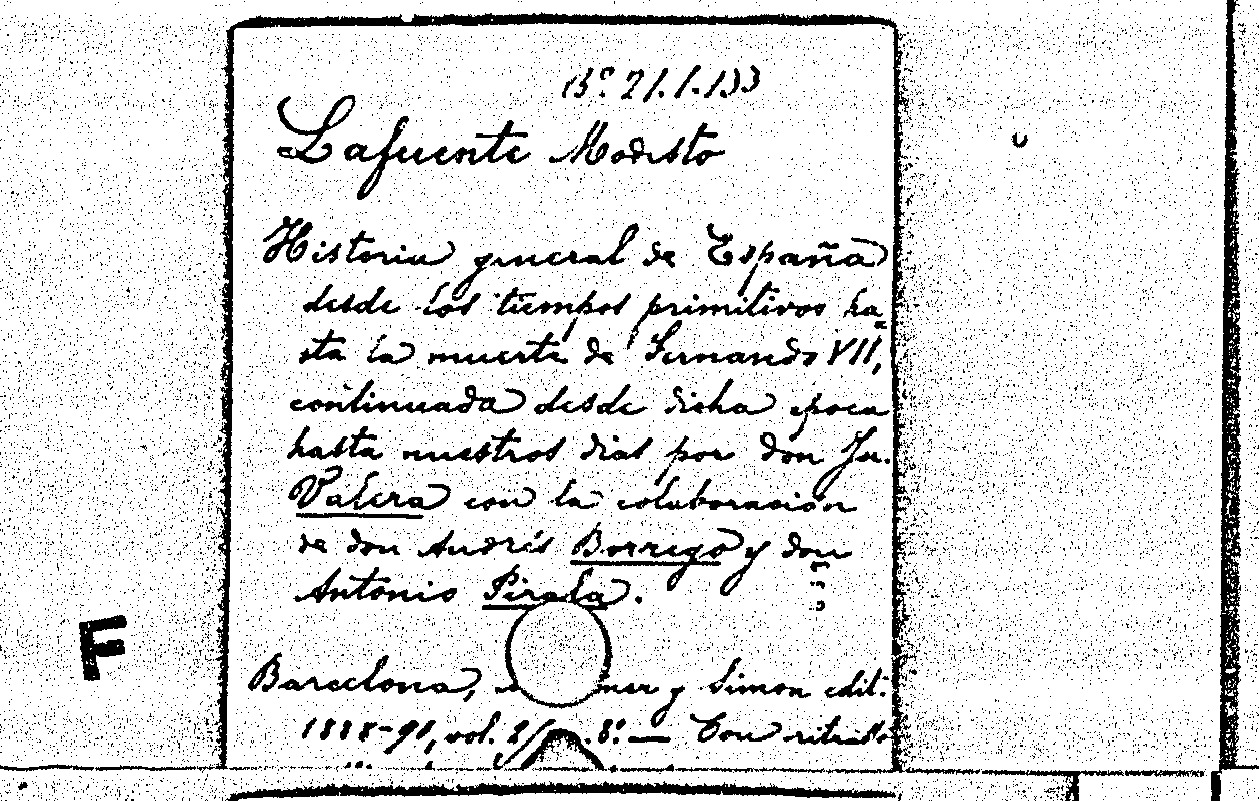 Bº. 21.1.133
Lafuente Modesto
Historia general de España
desde los tiempos primitivos ha-
sta la muerte de Fernando VII,
continuada desde dicha epoca
hasta nuestros dias por don Ju.
Valera con la colaboracion
de don Andrés Borrego y don
Antonio Pirala.
Barcelona, ner y Simon edit.
1888-91, vol. 8º. — Con ritratti
F